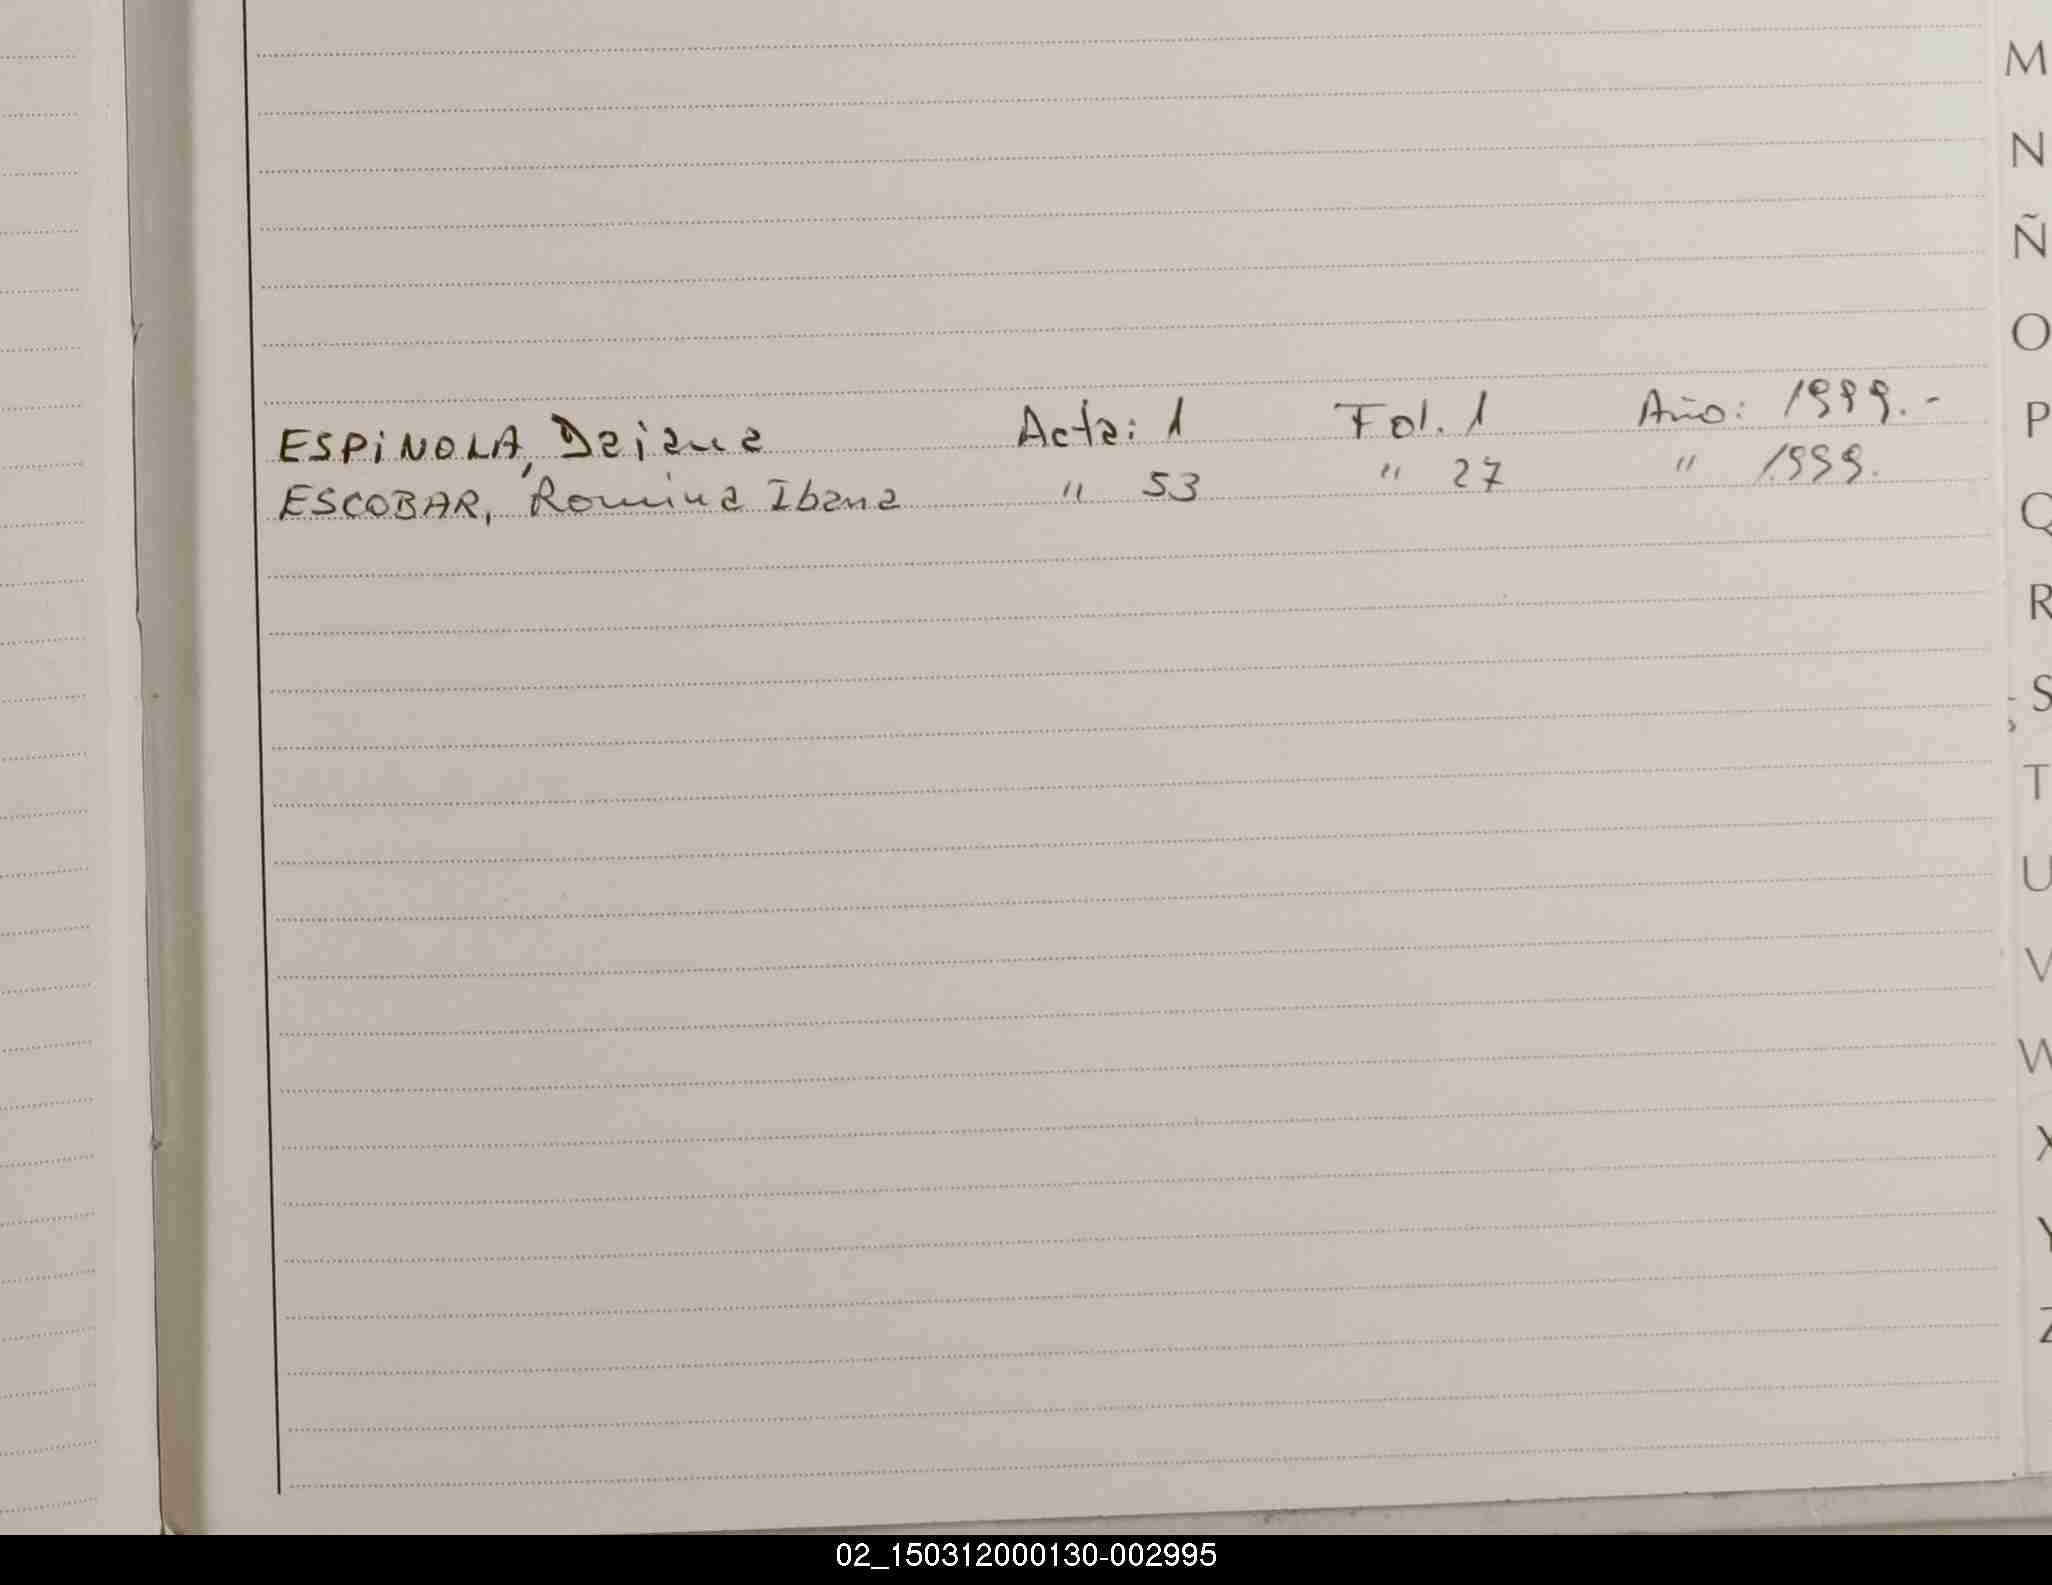 ESPINOLA, Daiana Acta: 1 Fol. 1 Año: 1999.-
ESCOBAR, Romina Ibana " 53 " 27 " 1999.
M
N
Ñ
O
P
Q
R
S
T
U
V
W
X
Y
Z
02_150312000130-002995